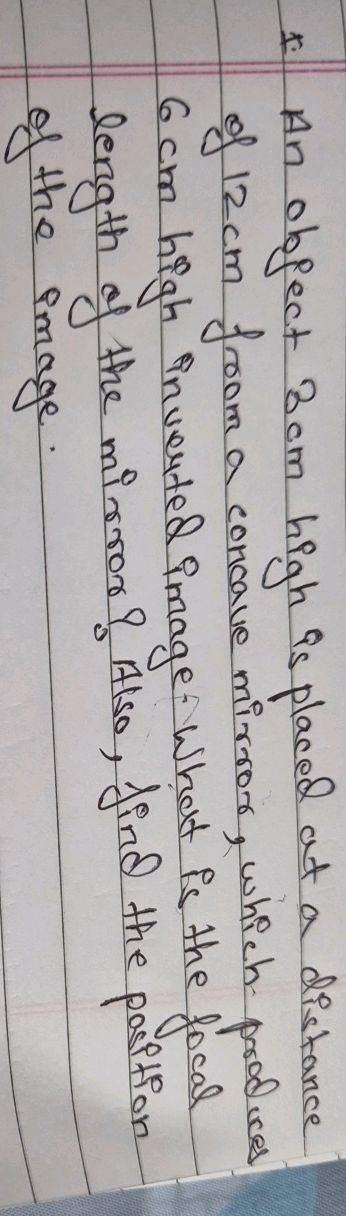 1. An object 3cm high is placed at a distance
of 12cm from a concave mirror, which produces
6cm high inverted image. What is the focal
length of the mirror? Also, find the position
of the image.